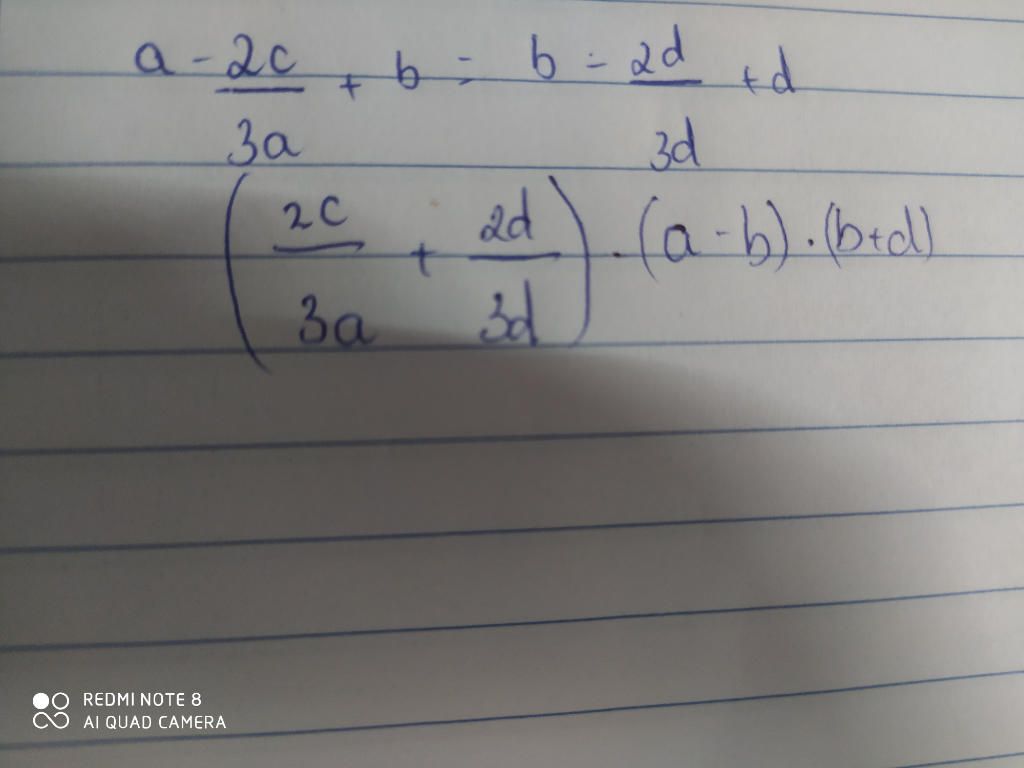 a - 2c/3a + b = b - 2d/3d + d
(2c/3a + 2d/3d) . (a - b) . (b + d)
REDMI NOTE 8
AI QUAD CAMERA